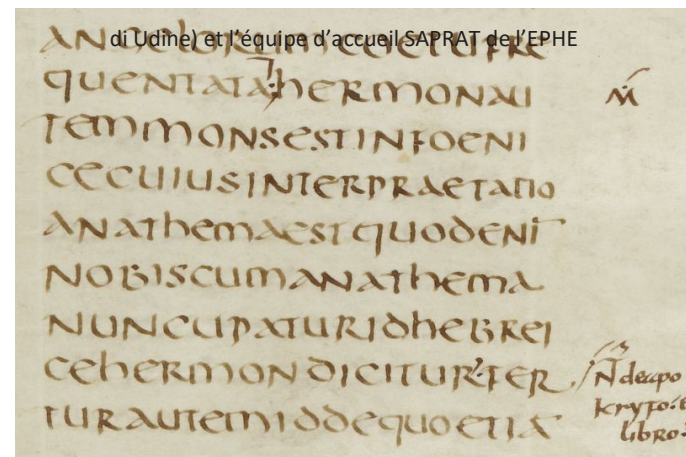 ANGELORUM COETU FRE
di Udine) et l’équipe d’accueil SAPRAT de l’EPHE
QUENTATA: hERMON AU
TEM MONS EST IN FOENI
CE CUIUS INTERPRAETATIO
ANAThEMA EST QUOD ENI
NOBISCUM ANAThEMA
NUNCUPATUR ID hEBREI
CE hERMON DICITUR: FER
TUR AUTEM ID DE QUO ETIA
M
N de apo
kryfo:
libro: